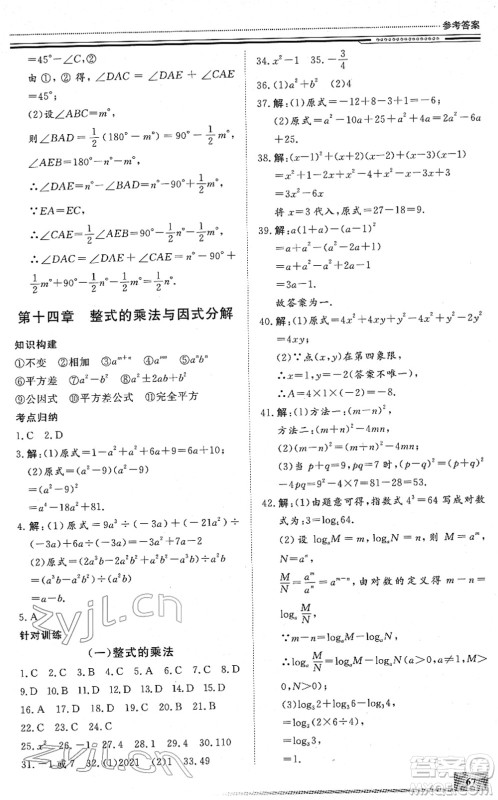 参考答案
=45°-∠C. ②
由①,②得,∠DAC=∠DAE+∠CAE
=45°;
(2)设∠ABC=m°,
则∠BAD=1/2(180°-m°)=90°-1/2m°,
∠AEB=180°-n°-m°,
∴∠DAE=n°-∠BAD=n°-90°+1/2m°.
∵EA=EC,
∴∠CAE=1/2∠AEB=90°-1/2n°-1/2m°.
∴∠DAC=∠DAE+∠CAE=n°-90°+
1/2m°+90°-1/2n°-1/2m°=1/2n°.
第十四章 整式的乘法与因式分解
知识构建
①不变 ②相加 ③aᵐ⁺ⁿ ④aᵐⁿ ⑤aⁿbⁿ
⑥平方差 ⑦a²-b² ⑧a²±2ab+b²
⑨公因式 ⑩平方差公式 ⑪完全平方公式
考点归纳
1.C 2.D
3.解:(1)原式=1-a²+a²+4a-5=4a-4.
(2)原式=(a²+b²)²(a²-b²)²
=(a⁴-b⁴)²
=a⁸-2a⁴b⁴+b⁸.
4.解:(1)原式=-9a³÷(-3a)+(-21a²)÷
(-3a)+6a÷(-3a)=3a²+7a-2.
(2)原式=(2a³b-2a²b²+a²b²-a³b)÷
(a²b)
=(a³b-a²b²)÷(a²b)
=a-b.
5.A
针对训练
(一)整式的乘法
1.C 2.C 3.D 4.D 5.A 6.A 7.D 8.D
9.D 10.C 11.B 12.D 13.C 14.D 15.B
16.A 17.A 18.A 19.B 20.D 21.D
22.C 23.C 24.C
25.x² 26.-1 27.8 28.4 29.8 30.110
31.-1或7 32.(1)2021 (2)1 33.49
34.x²-1 35.-3/4
36.(1)a²+b² (2)4
37.解:(1)原式=-12+8-3+1=-6.
(2)原式=a²-(a²-6a+9)=a²-a²+6a
38.解:(x-1)(x²+x+1)-(x-3)²
将x=3代入,原式=27-18=9.
39.解:a(1+a)-(a-1)²
=a+a²-(a²-2a+1)
=a+a²-a²+2a-1
=3a-1.
故答案为3a-1.
40.解:(1)原式=4x²+4xy+y²-4x²-y²=
4xy;
(2)∵点(x,y)在第四象限,
∴x=1,y=-2(答案不唯一),
∴A=4×1×(-2)=-8.
41.解:(1)方法一:(m-n)²,
方法二:(m+n)²-4mn;
(2)(m-n)²=(m+n)²-4mn;
(3)当p+q=9,pq=7时,(p-q)²=(p+
q)²-4pq=9²-4×7=81-28=53.
42.解:(1)由题意可得,指数式4³=64写成对数
式为:3=log₄64.
(2)设logₐM=m,logₐN=n,则M=aᵐ,
N=aⁿ,
∴M/N=aᵐ/aⁿ=aᵐ⁻ⁿ,由对数的定义得m-n=
logₐM/N.
又∵m-n=logₐM-logₐN,
∴logₐM/N=logₐM-logₐN(a>0,a≠1,M
>0,N>0).
(3)log₃2+log₃6-log₃4
=log₃(2×6÷4)
=log₃3
=1.
67
zyjl.cn
zyjl.cn